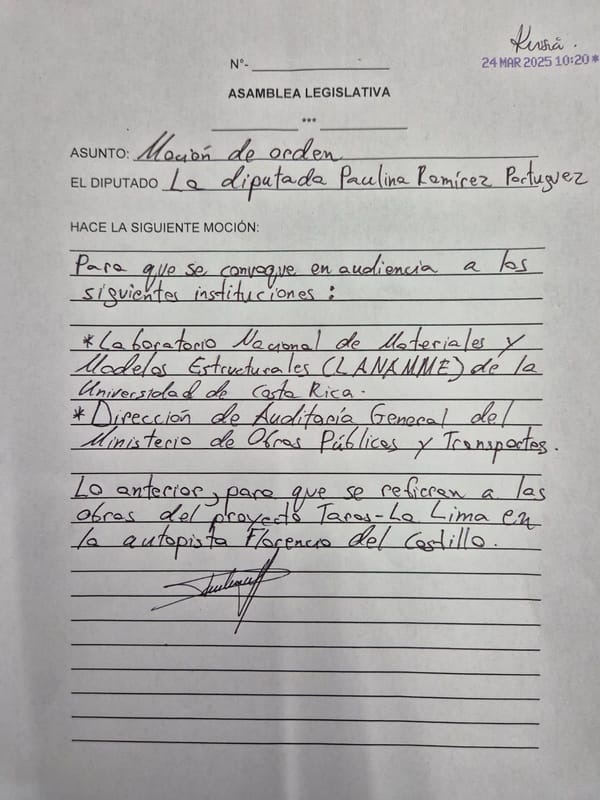 24 MAR 2025 10:20*
N°-
ASAMBLEA LEGISLATIVA
***
ASUNTO: Moción de orden
EL DIPUTADO La diputada Paulina Ramírez Portuguez
HACE LA SIGUIENTE MOCIÓN:
Para que se convoque en audiencia a los
siguientes instituciones:
*Laboratorio Nacional de Materiales y
Modelos Estructurales (LANAMME) de la
Universidad de Costa Rica.
*Dirección de Auditaría General del
Ministerio de Obras Públicas y Transportes.
Lo anterior, para que se refieran a las
obras del proyecto Taras-La Lima en
la autopista Florencio del Castillo.